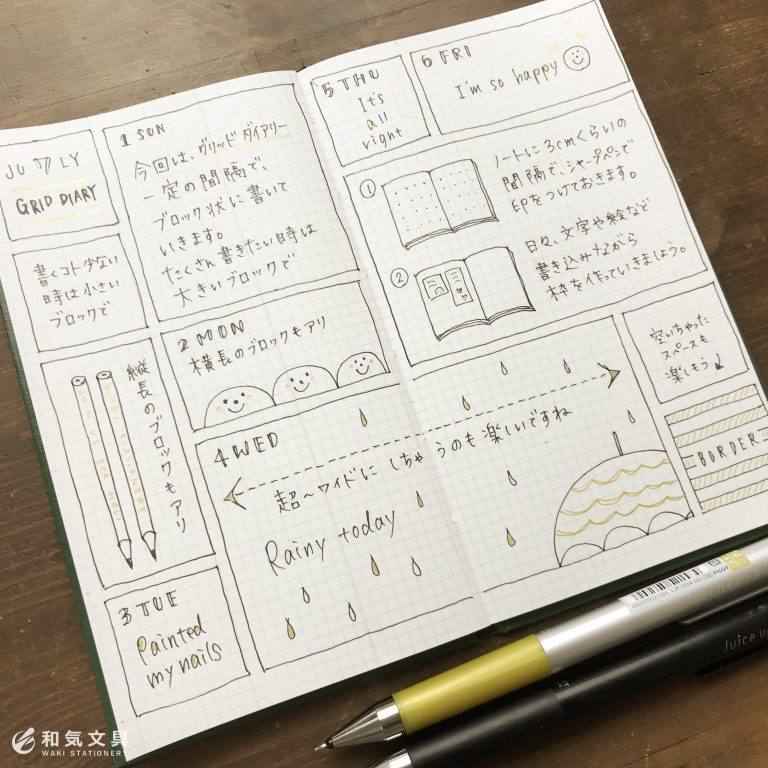 JULY
GRID DIARY
書くコト少ない
時は小さい
ブロックで
縦長のブロックもアリ
1 SUN
今回は、グリッドダイアリー
一定の間隔で、
ブロック状に書いて
いきます。
たくさん書きたい時は
大きいブロックで
2 MON
横長のブロックもアリ
3 TUE
Painted
my nails
4 WED
超〜ワイドに しちゃうのも楽しいですね
Rainy today
5 THU
It's
all
right
6 FRI
I'm so happy
①
ノートに3cmくらいの
間隔で、シャープペンで
印をつけておきます。
②
日々、文字や絵など
書き込みながら
枠を作っていきましょう。
空いちゃった
スペースも
楽しもう
BORDER
PILOT
Juice up
和気文具
WAKI STATIONERY